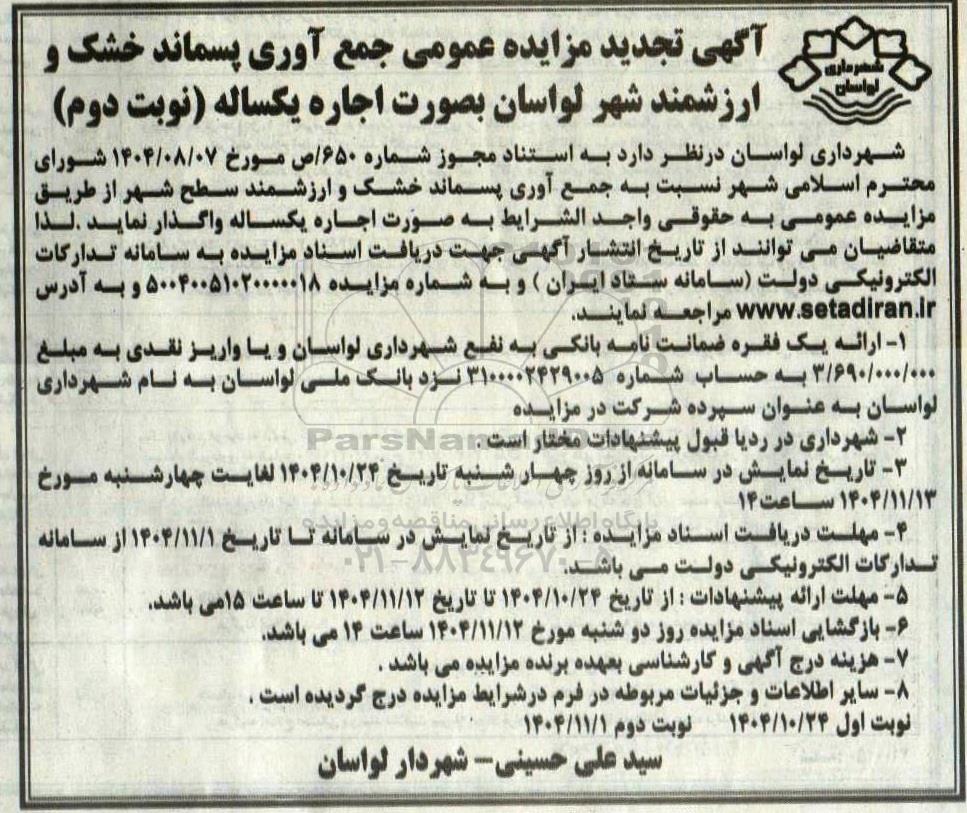 شهرداری
لواسان
آگهی تجدید مزایده عمومی جمع آوری پسماند خشک و
ارزشمند شهر لواسان بصورت اجاره یکساله (نوبت دوم)
شهرداری لواسان درنظر دارد به استناد مجوز شماره ۶۵۰/ص مورخ ۱۴۰۴/۰۸/۰۷ شورای
محترم اسلامی شهر نسبت به جمع آوری پسماند خشک و ارزشمند سطح شهر از طریق
مزایده عمومی به حقوقی واجد الشرایط به صورت اجاره یکساله واگذار نماید .لذا
متقاضیان می توانند از تاریخ انتشار آگهی جهت دریافت اسناد مزایده به سامانه تدارکات
الکترونیکی دولت (سامانه ستاد ایران ) و به شماره مزایده ۵۰۰۴۰۰۵۱۰۲۰۰۰۰۰۱۸ و به آدرس
www.setadiran.ir مراجعه نمایند.
۱- ارائه یک فقره ضمانت نامه بانکی به نفع شهرداری لواسان و یا واریز نقدی به مبلغ
۳/۶۹۰/۰۰۰/۰۰۰ به حساب شماره ۳۱۰۰۰۰۲۴۲۹۰۰۵ نزد بانک ملی لواسان به نام شهرداری
لواسان به عنوان سپرده شرکت در مزایده
۲- شهرداری در ردیا قبول پیشنهادات مختار است .
۳- تاریخ نمایش در سامانه از روز چهار شنبه تاریخ ۱۴۰۴/۱۰/۲۴ لغایت چهارشنبه مورخ
۱۴۰۴/۱۱/۱۳ ساعت۱۴
۴- مهلت دریافت اسناد مزایده : از تاریخ نمایش در سامانه تا تاریخ ۱۴۰۴/۱۱/۱ از سامانه
تدارکات الکترونیکی دولت می باشد.
۵- مهلت ارائه پیشنهادات : از تاریخ ۱۴۰۴/۱۰/۲۴ تا تاریخ ۱۴۰۴/۱۱/۱۲ تا ساعت ۱۵می باشد.
۶- بازگشایی اسناد مزایده روز دو شنبه مورخ ۱۴۰۴/۱۱/۱۳ ساعت ۱۴ می باشد.
۷- هزینه درج آگهی و کارشناسی بعهده برنده مزایده می باشد .
۸- سایر اطلاعات و جزئیات مربوطه در فرم درشرایط مزایده درج گردیده است .
نوبت اول ۱۴۰۴/۱۰/۲۴ نوبت دوم ۱۴۰۴/۱۱/۱
سید علی حسینی- شهردار لواسان
پایگاه اطلاع رسانی مناقصه و مزایده